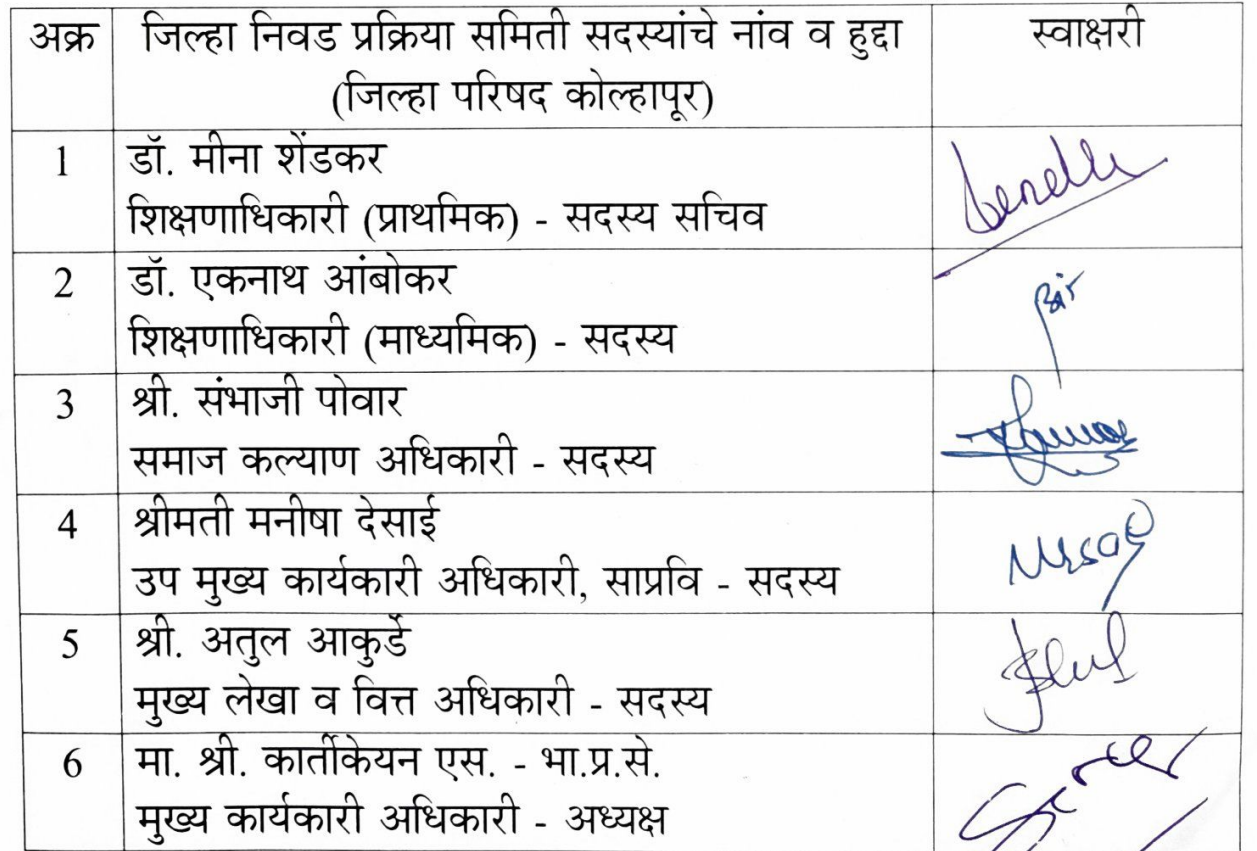 अक्र जिल्हा निवड प्रक्रिया समिती सदस्यांचे नांव व हुद्दा स्वाक्षरी
(जिल्हा परिषद कोल्हापूर)
1 डॉ. मीना शेंडकर
शिक्षणाधिकारी (प्राथमिक) - सदस्य सचिव
2 डॉ. एकनाथ आंबोकर
शिक्षणाधिकारी (माध्यमिक) - सदस्य
3 श्री. संभाजी पोवार
समाज कल्याण अधिकारी - सदस्य
4 श्रीमती मनीषा देसाई
उप मुख्य कार्यकारी अधिकारी, साप्रवि - सदस्य
5 श्री. अतुल आकुर्डे
मुख्य लेखा व वित्त अधिकारी - सदस्य
6 मा. श्री. कार्तीकेयन एस. - भा.प्र.से.
मुख्य कार्यकारी अधिकारी - अध्यक्ष